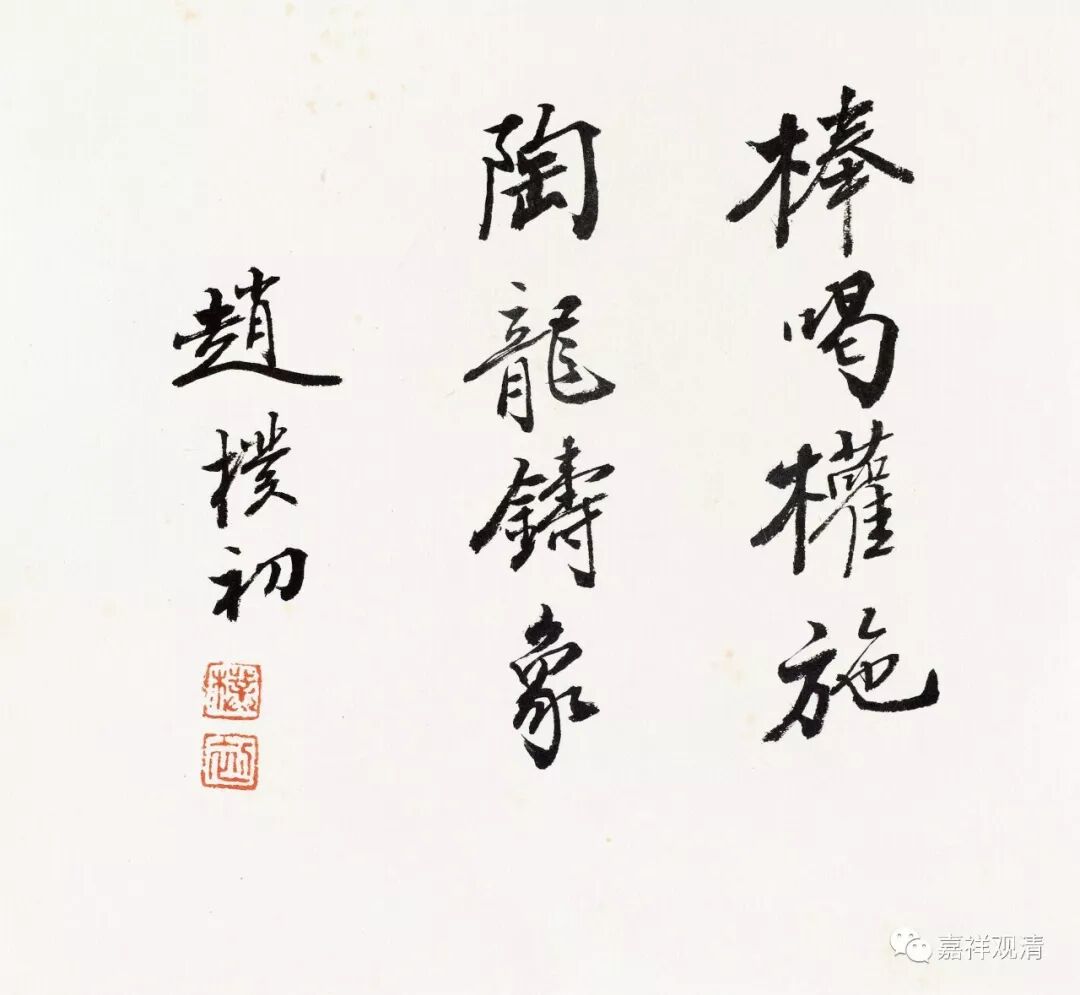 棒喝權施
陶龍鑄象
趙樸初
嘉祥观清